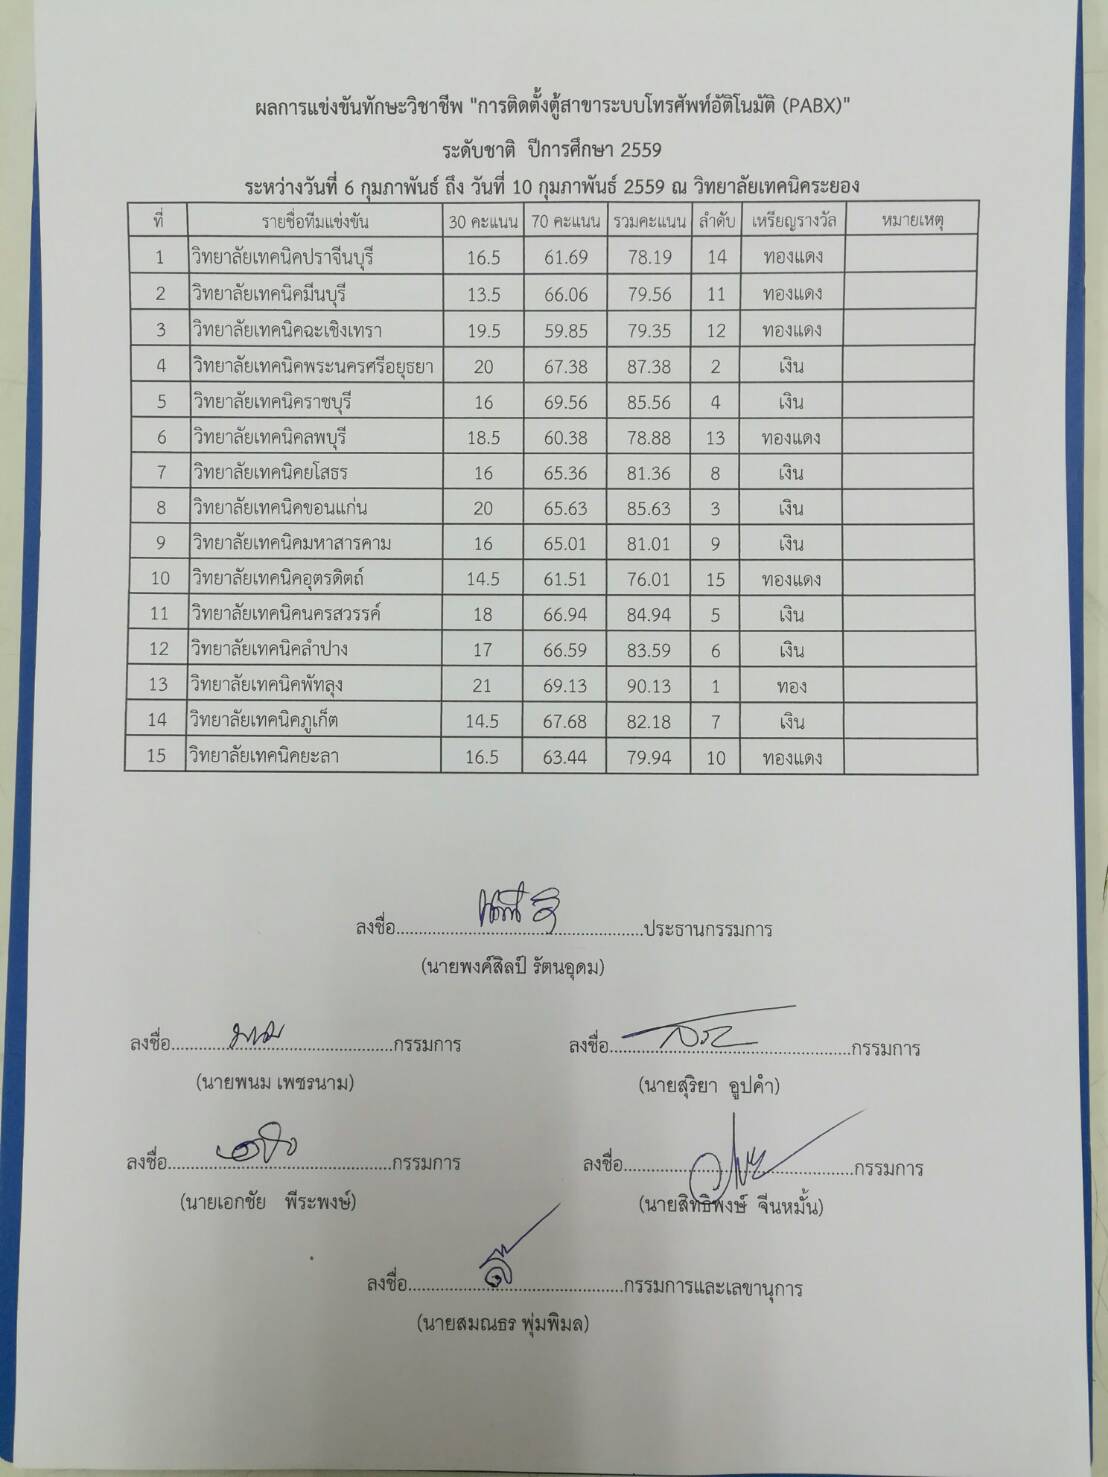 ผลการแข่งขันทักษะวิชาชีพ "การติดตั้งตู้สาขาระบบโทรศัพท์อัติโนมัติ (PABX)"
ระดับชาติ ปีการศึกษา 2559
ระหว่างวันที่ 6 กุมภาพันธ์ ถึง วันที่ 10 กุมภาพันธ์ 2559 ณ วิทยาลัยเทคนิคระยอง
ที่ รายชื่อทีมแข่งขัน 30 คะแนน 70 คะแนน รวมคะแนน ลำดับ เหรียญรางวัล หมายเหตุ
1 วิทยาลัยเทคนิคปราจีนบุรี 16.5 61.69 78.19 14 ทองแดง
2 วิทยาลัยเทคนิคมีนบุรี 13.5 66.06 79.56 11 ทองแดง
3 วิทยาลัยเทคนิคฉะเชิงเทรา 19.5 59.85 79.35 12 ทองแดง
4 วิทยาลัยเทคนิคพระนครศรีอยุธยา 20 67.38 87.38 2 เงิน
5 วิทยาลัยเทคนิคราชบุรี 16 69.56 85.56 4 เงิน
6 วิทยาลัยเทคนิคลพบุรี 18.5 60.38 78.88 13 ทองแดง
7 วิทยาลัยเทคนิคยโสธร 16 65.36 81.36 8 เงิน
8 วิทยาลัยเทคนิคขอนแก่น 20 65.63 85.63 3 เงิน
9 วิทยาลัยเทคนิคมหาสารคาม 16 65.01 81.01 9 เงิน
10 วิทยาลัยเทคนิคอุตรดิตถ์ 14.5 61.51 76.01 15 ทองแดง
11 วิทยาลัยเทคนิคนครสวรรค์ 18 66.94 84.94 5 เงิน
12 วิทยาลัยเทคนิคลำปาง 17 66.59 83.59 6 เงิน
13 วิทยาลัยเทคนิคพัทลุง 21 69.13 90.13 1 ทอง
14 วิทยาลัยเทคนิคภูเก็ต 14.5 67.68 82.18 7 เงิน
15 วิทยาลัยเทคนิคยะลา 16.5 63.44 79.94 10 ทองแดง
ลงชื่อ..........ประธานกรรมการ
(นายพงค์สิลป์ รัตนอุดม)
ลงชื่อ..........กรรมการ ลงชื่อ..........กรรมการ
(นายพนม เพชรนาม) (นายสุริยา อูปคำ)
ลงชื่อ..........กรรมการ ลงชื่อ..........กรรมการ
(นายเอกชัย พีระพงษ์) (นายสิทธิพงษ์ จีนหมั้น)
ลงชื่อ..........กรรมการและเลขานุการ
(นายสมณธร พุ่มพิมล)